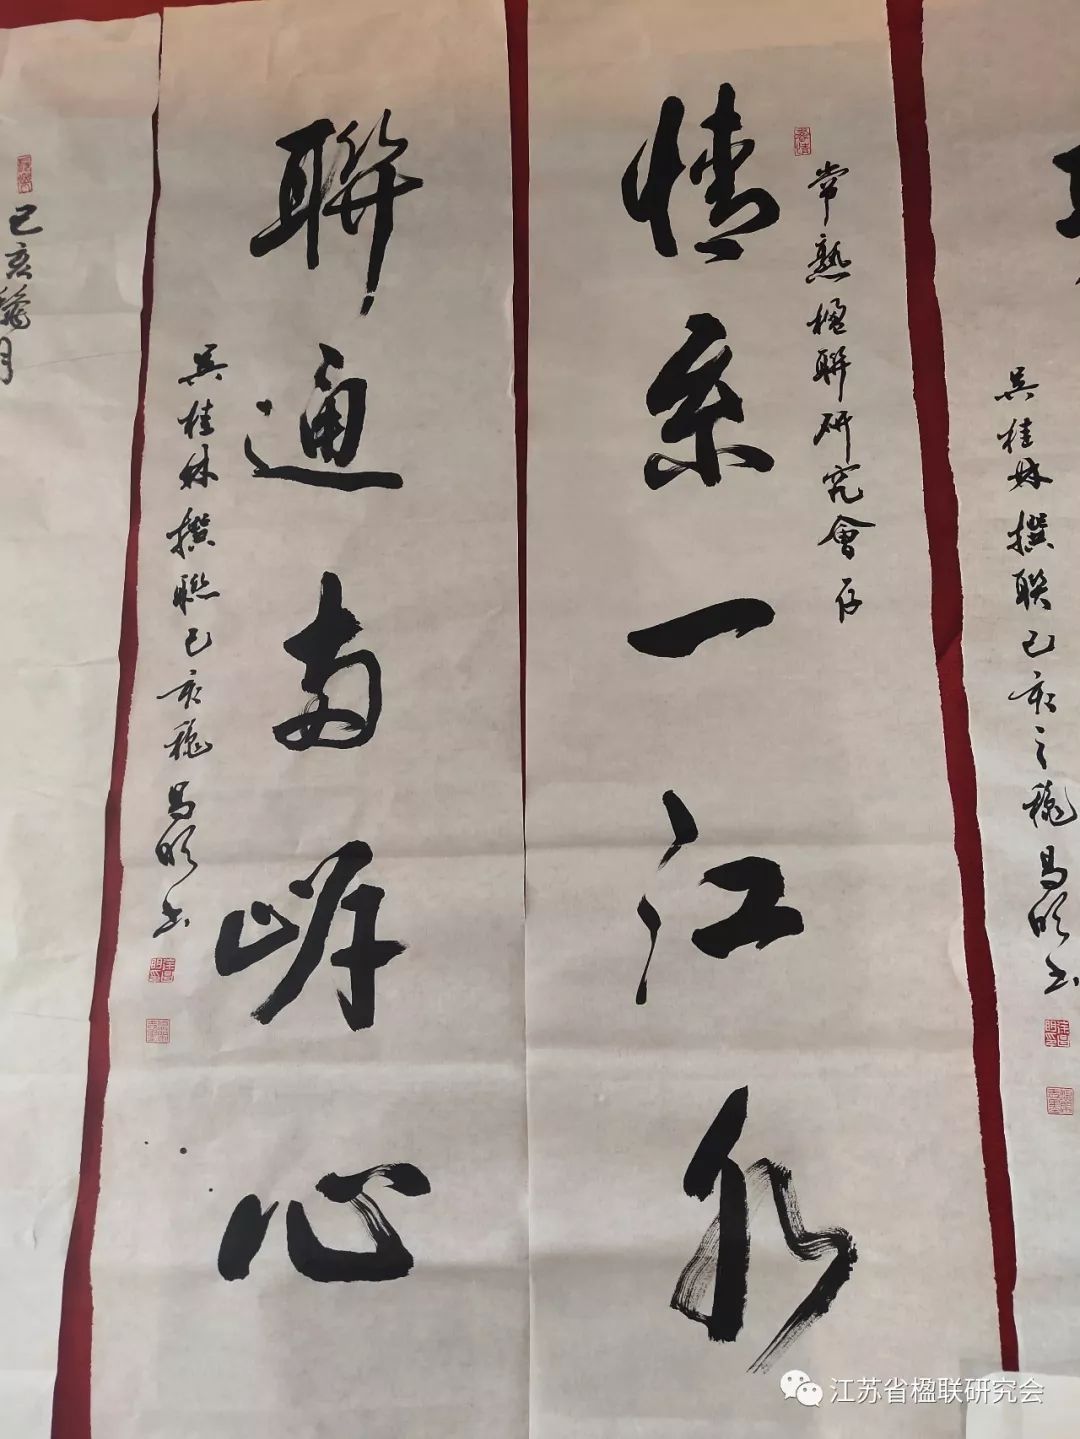 常熟楹聯研究會存
情系一江水
聯通両岸心
吴桂林撰聯己亥穐昌明书
吴桂林撰联己亥之穐昌明书
己亥龝月
江苏省楹联研究会